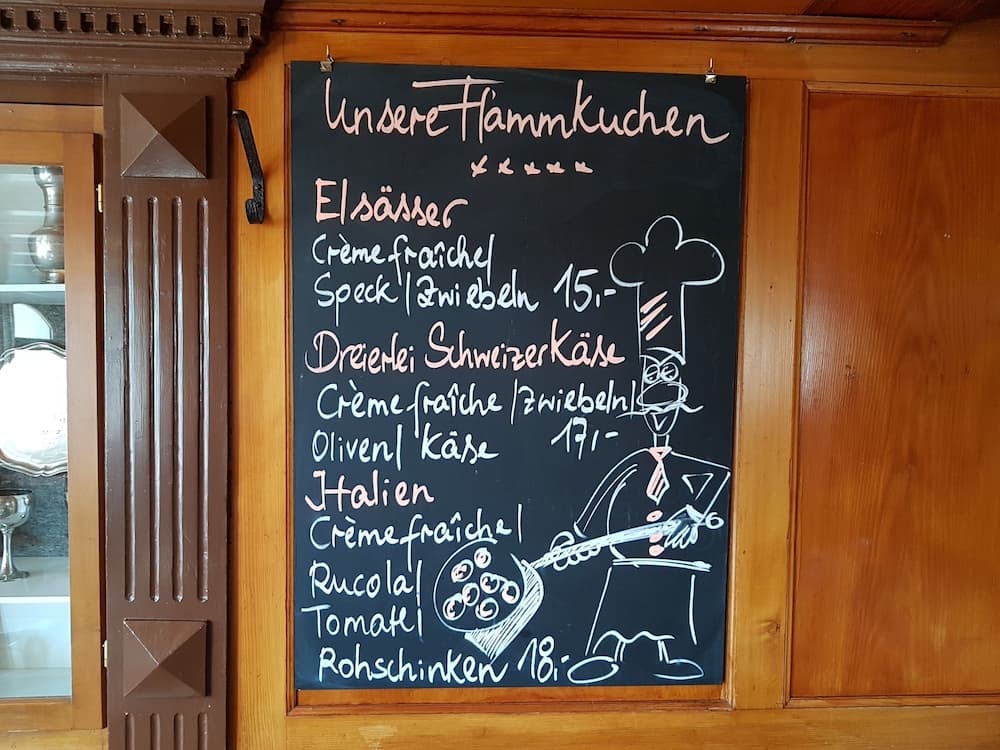 Unsere Flammkuchen
Elsässer
Crème fraîche/
Speck/Zwiebeln 15,-
Dreierlei Schweizer Käse
Crème fraîche/Zwiebeln/
Oliven/Käse 17,-
Italien
Crème fraîche/
Rucola/
Tomate/
Rohschinken 18,-